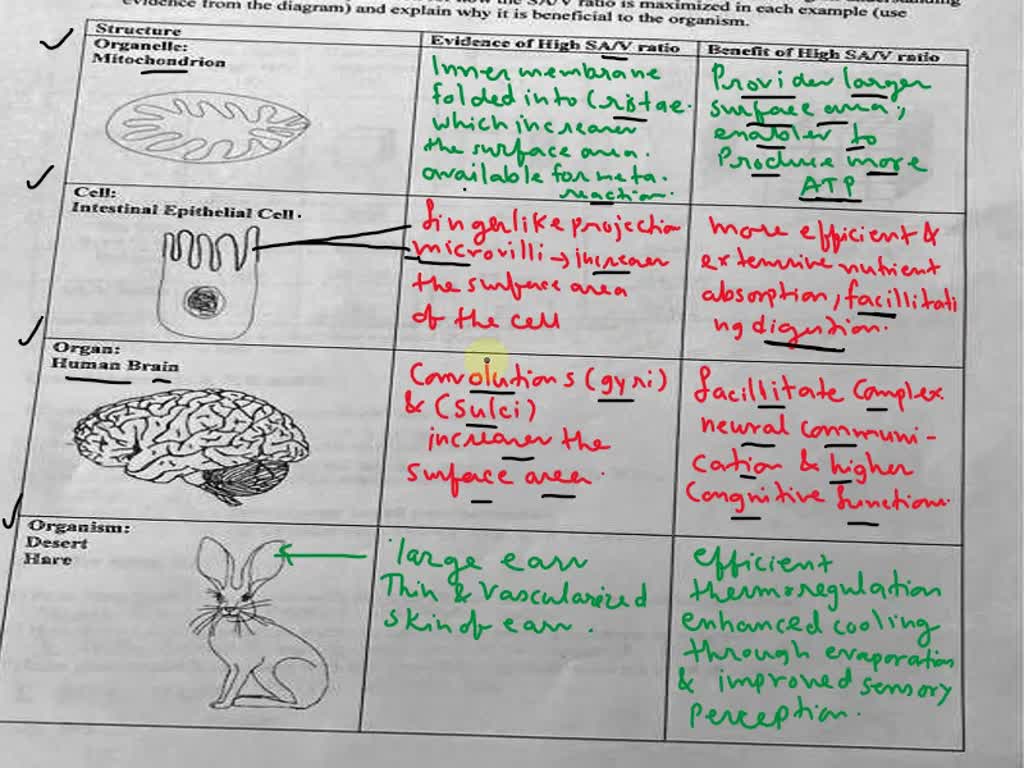 evidence from the diagram) and explain why it is beneficial to the organism.
Structure
Evidence of High SA/V ratio
Benefit of High SA/V ratio
Organelle:
Mitochondrion
Inner membrane
folded into Cristae.
which increases
the surface area.
available for meta.
reaction.
Provides larger
surface area,
enables to
Produce more
ATP
Cell:
Intestinal Epithelial Cell.
fingerlike projection
microvilli → increases
the surface area
of the cell
more efficient &
extensive nutrient
absorption, facillitati
ng digestion.
Organ:
Human Brain
Convolutions (gyri)
& (Sulci)
increases the
surface area.
facillitate Complex
neural communi-
cation & higher
Congnitive functions.
Organism:
Desert
Hare
large ears
Thin & Vascularized
skin of ears.
efficient
thermoregulation
enhanced cooling
through evaporation
& improved sensory
perception.